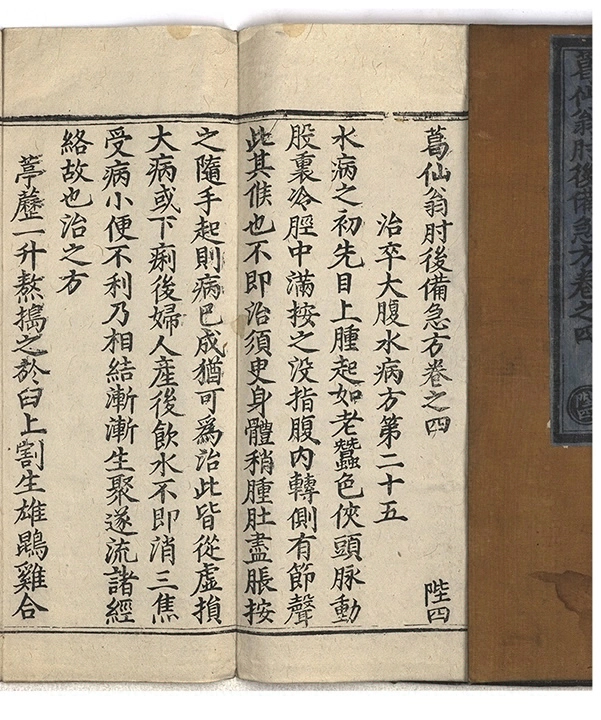 葛仙翁肘後備急方卷之四
陛四
葛仙翁肘後備急方卷之四 陛四
治卒大腹水病方第二十五
水病之初先目上腫起如老蠶色俠頭脉動
股裏冷脛中滿按之没指腹内轉側有節聲
此其候也不即治須臾身體稍腫肚盡脹按
之隨手起則病巳成猶可爲治此皆從虛損
大病或下痢後婦人産後飲水不即消三焦
受病小便不利乃相結漸漸生聚遂流諸經
絡故也治之方
葶藶一升熬搗之於臼上割生雄鵾雞合